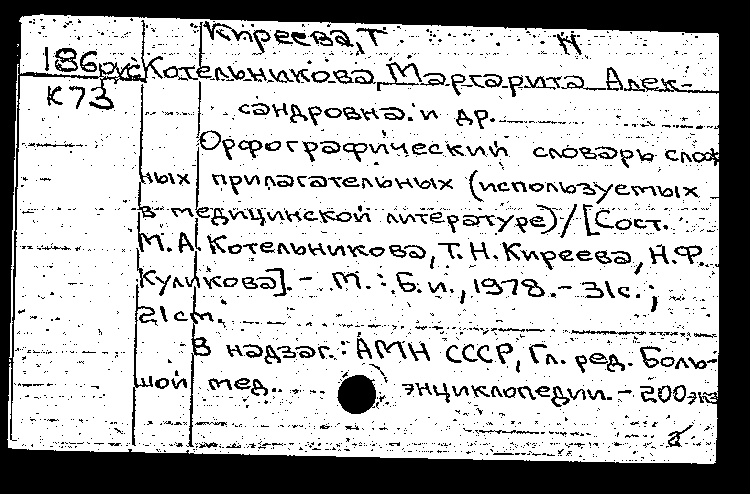 Киреева, Т Н
186рус Котельникова, Маргарита Алек-
К73
сандровна. и др.
Орфографический словарь слож
ных прилагательных (используемых
в медицинской литературе)/[Сост.
М.А. Котельникова, Т.Н. Киреева, Н.Ф.
Куликова]. - М.: Б.и., 1978. - 31с.;
21см.
В надзаг.: АМН СССР, Гл. ред. Боль-
шой мед. энциклопедии. - 200экз